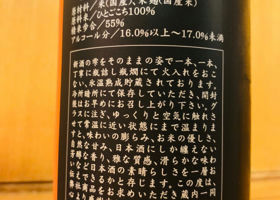 原材料／米(国産)、米麹(国産米)
原料米／ひとごこち100%
精米歩合／55%
アルコール分／16.0%以上～17.0%未満
新酒の雫をそのままの姿で一本、一本、
丁寧に瓶詰し瓶燗にて火入れをおこ
ない、氷温熟成貯蔵されております。
冷所暗所にて保管していただき、開封
後はお早めにお召し上がり下さい。グ
ラスに注ぎ、ゆっくりと空気に触れさ
せて常温に近い状態にまで温まりま
すと、味わいの膨らみ、お米の優しい
自然な甘み、日本酒にしか纏えない
芳醇な香り、雅な質感、滑らかな味わ
いなど日本酒の素晴らしさを一層お
伝えできるかと存じます。この度は、
弊社商品をお求めいただき蔵内一同